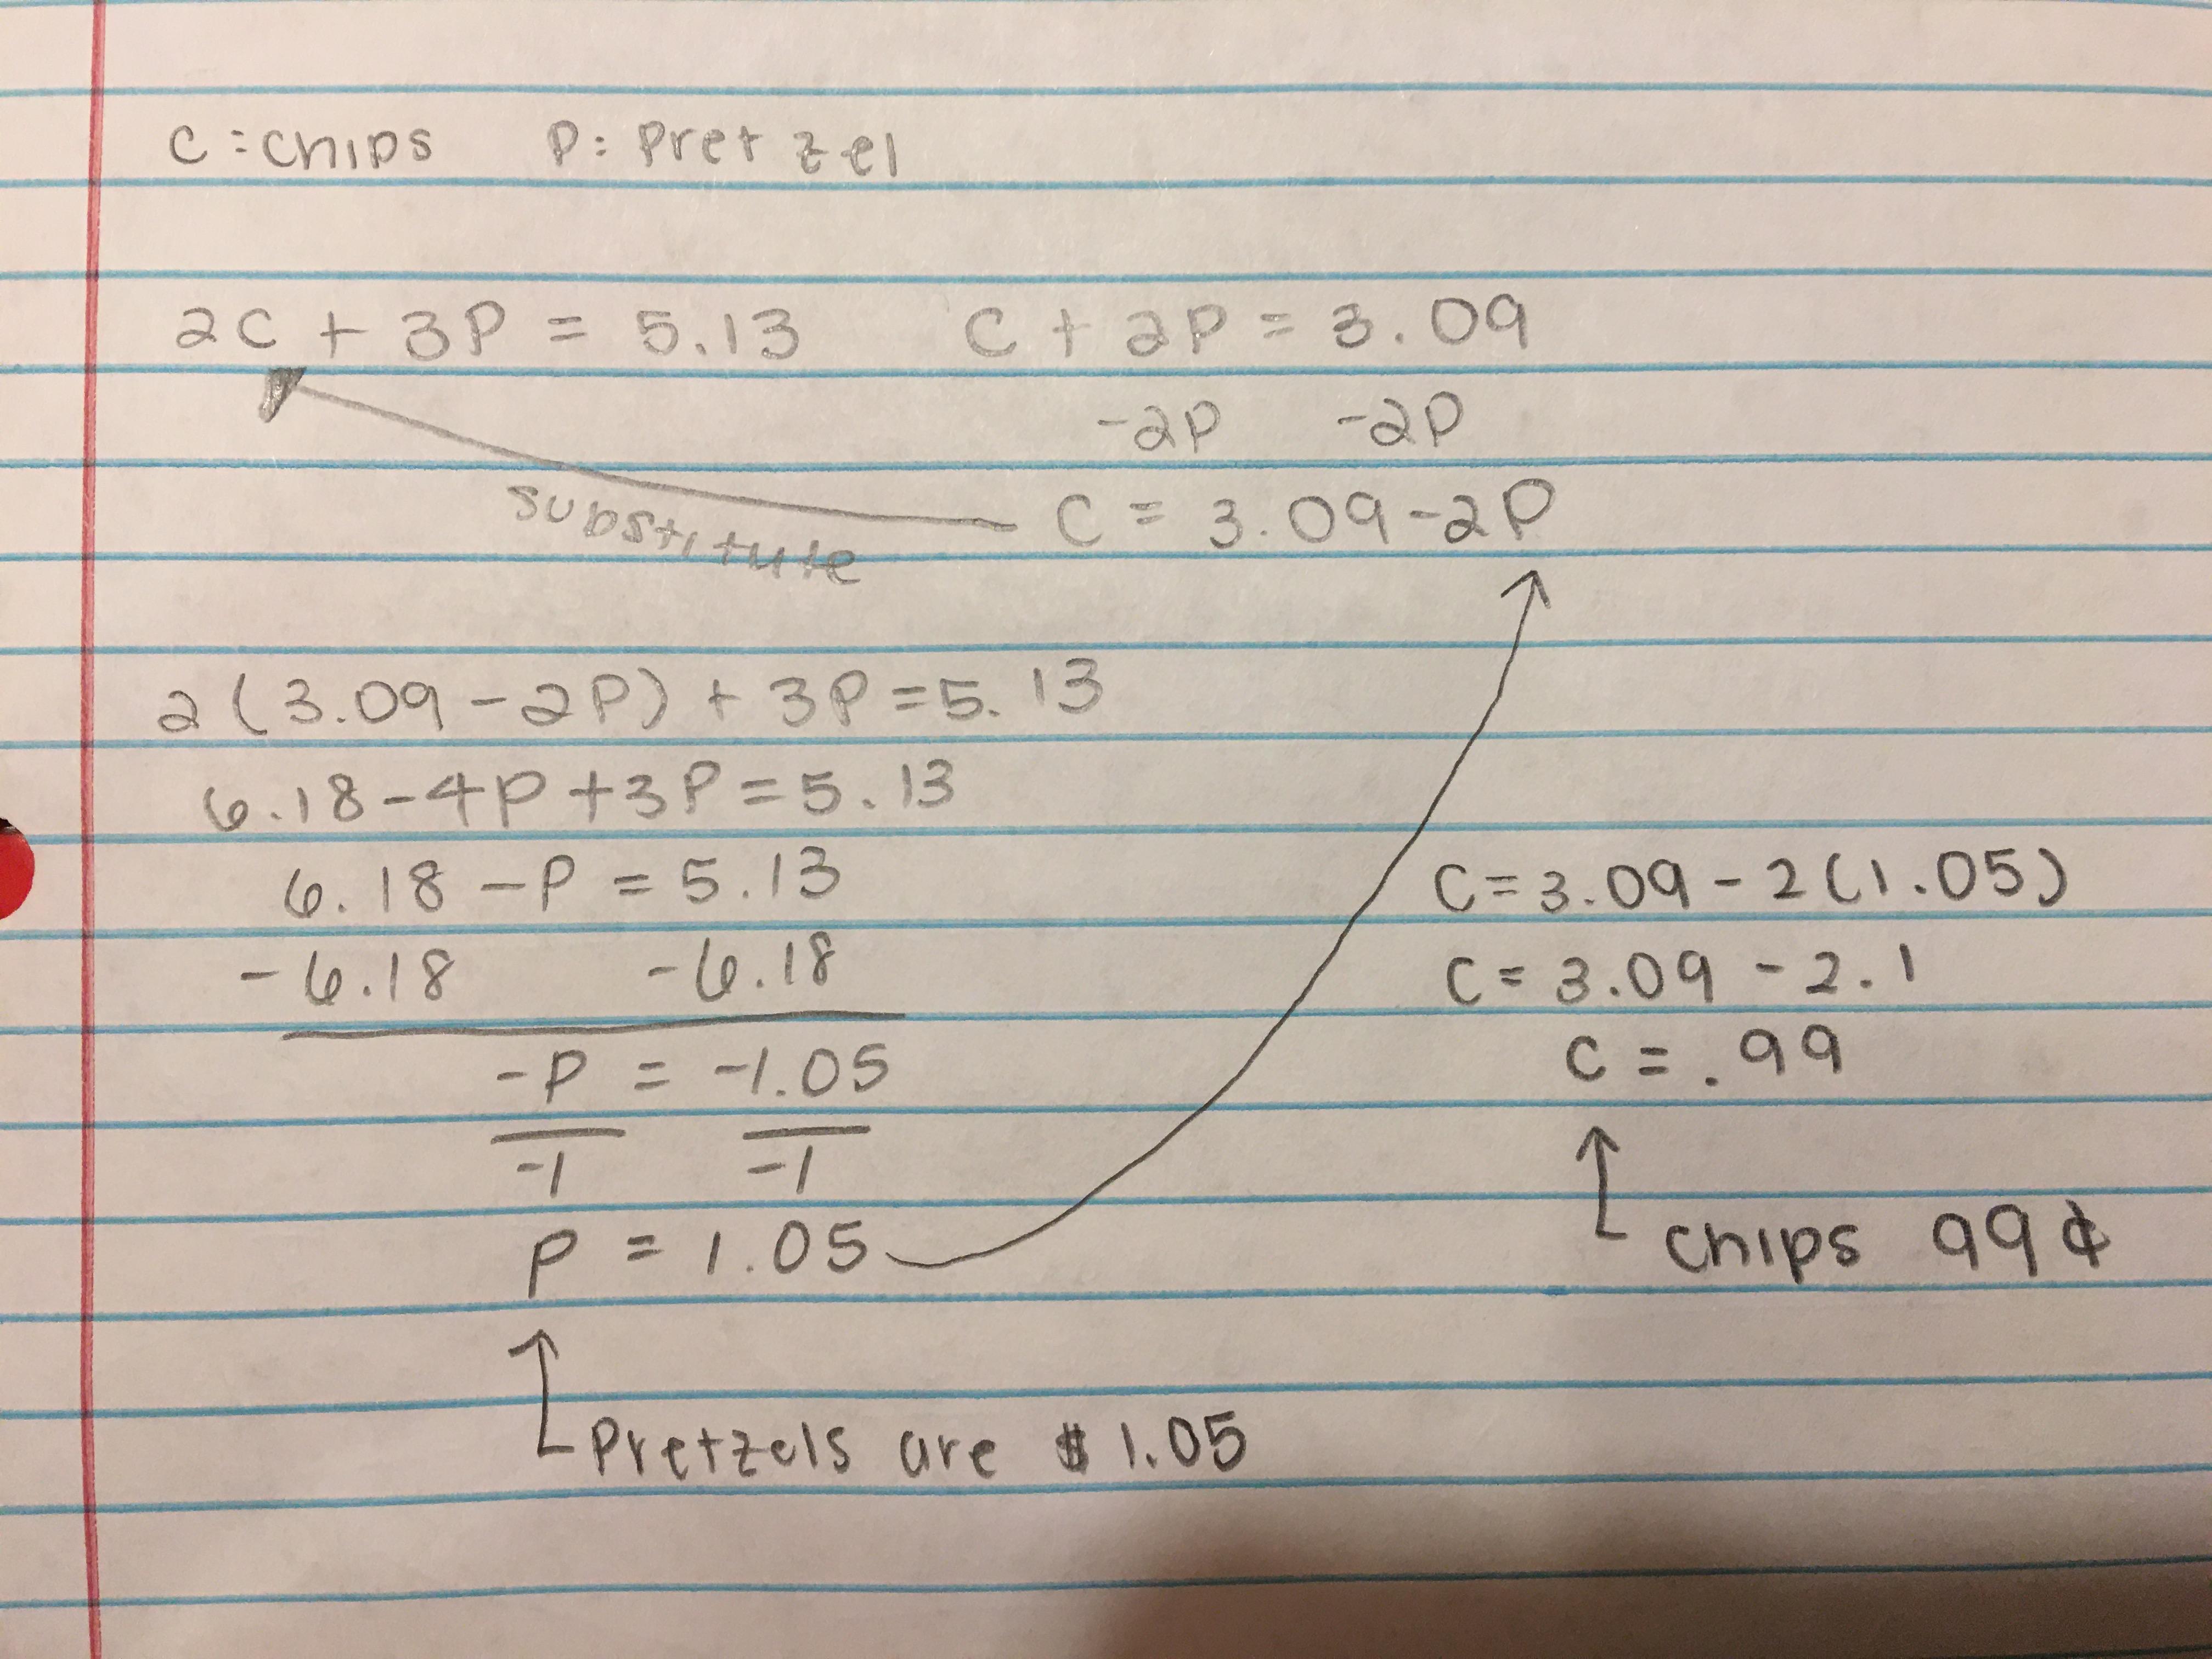 C = chips P: Pretzel
2C + 3P = 5.13 C + 2P = 3.09
-2P -2P
substitute C = 3.09 - 2P
2(3.09 - 2P) + 3P = 5.13
6.18 - 4P + 3P = 5.13
6.18 - P = 5.13
-6.18 -6.18
-P = -1.05
-1 -1
P = 1.05
Pretzels are $1.05
C = 3.09 - 2(1.05)
C = 3.09 - 2.1
C = .99
Chips 99¢